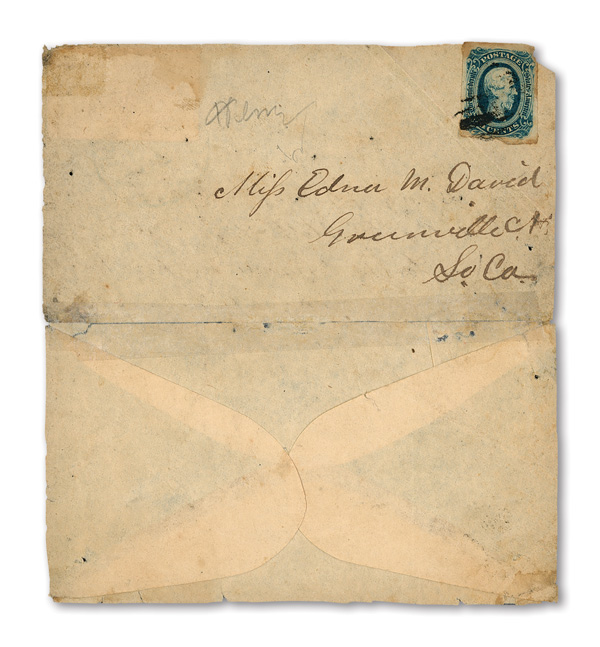 POSTAGE
CENTS
Miss Edner M. David
Greenville C.H.
So Ca